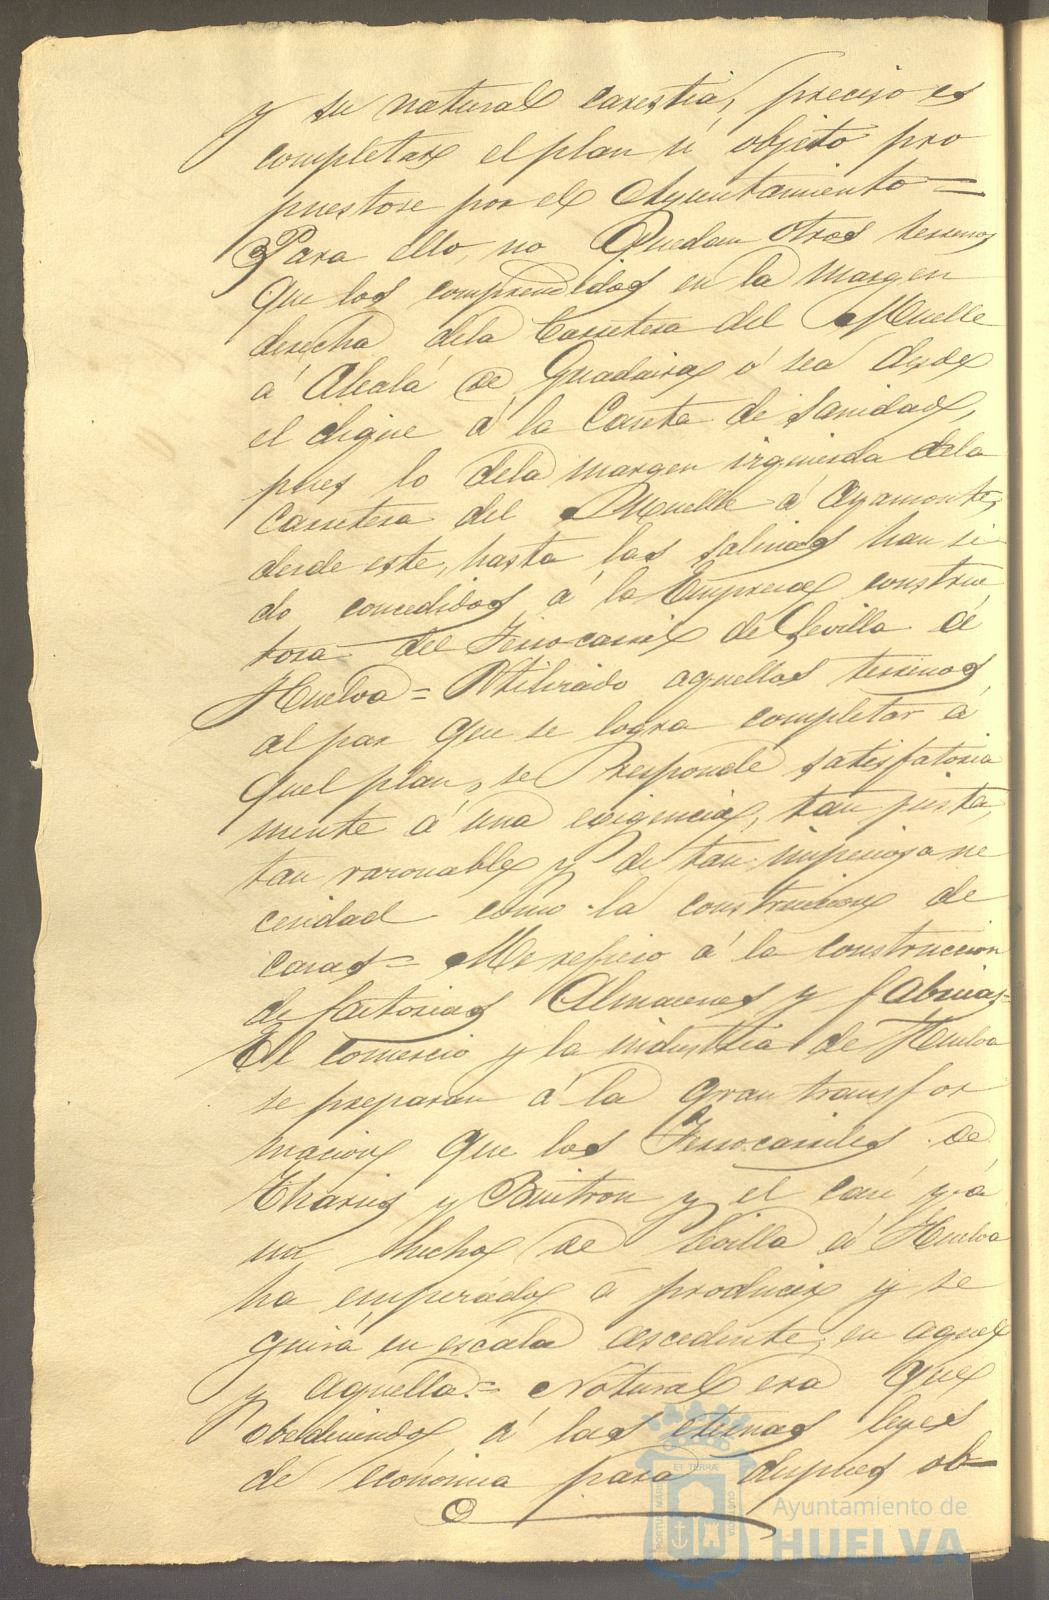 y su natural carestia, preciso es
completar el plan ú objeto pro
puestose por el Ayuntamiento=
Para ello, no quedan otros terrenos
que los comprendidos en la margen
derecha dela Carretera del Muelle
á Alcalá de Guadaira ó sea desde
el dique á la Caseta de Sanidad,
pues lo dela margen izquierda dela
Carretera del Muelle á Ayamonte,
desde este, hasta las salinas han si
do concedidos á la Empresa construc
tora del Ferro-carril de Sevilla á
Huelva= Utilizado aquellos terrenos
al par que se logra completar á
quel plan, se responde satisfatoria
mente á una exigencia, tan justa,
tan razonable y de tan imperiosa ne
cesidad como la construccion de
casas= Me refiero á la construccion
de factorias Almacenes y fabricas=
El comercio y la industria de Huelva
se preparan á la gran transfor
macion que los Ferrocarriles de
Tharsis y Buitron y el casi yá
un hecho de Sevilla á Huelva
ha empezado á producir y se
guirá en escala ascedente, en aquel
y aquella.= Natural era que
obedeciendo á las eternas leyes
de economia para despues ob-
ET TERRAE
Ayuntamiento de
HUELVA